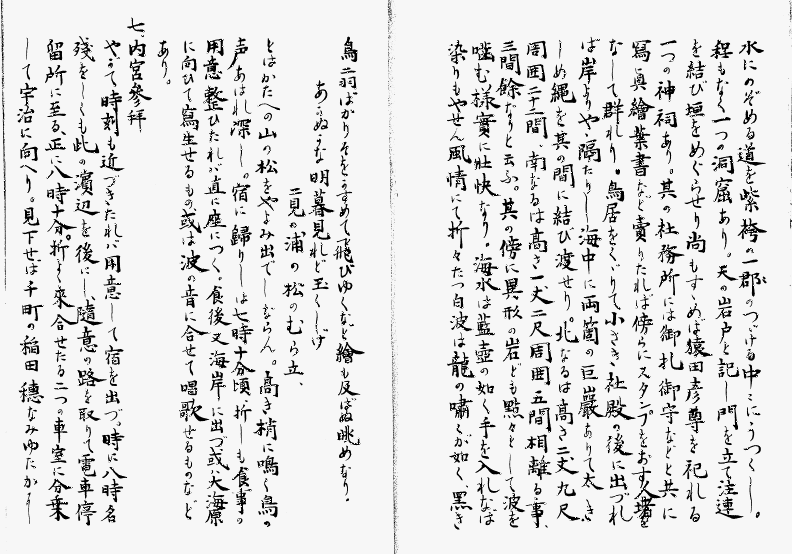 水にのぞめる道を紫袴の一郡のつゞける中々にうつくし。
程もなく一つの洞窟あり。天の岩戸と記し門を立て注連
を結び垣をめぐらせり尚もすゝめば猿田彦尊を祀れる
一つの神祠あり。其の社務所には御札御守などと共に
寫眞繪葉書など賣りたれば傍らにスタンプをおす人場を
なして群れり。鳥居をくゞりて小さき社殿の後に出づれ
ば岸よりやゝ隔たりし海中に両箇の巨巌ありて太き
しめ縄を其の間に結び渡せり。北なるは高さ二丈九尺
周囲二十二間南なるは高さ一丈二尺周囲五間相離る事、
三間餘なりと云ふ。其の傍に異形の岩ども點々として波を
噛む様實に壮快なり。海水は藍壺の如く手を入れなば
染りもやせん風情にて折々たつ白波は龍の嘯くが如く、黒き
鳥二羽ばかりそをかすめて飛びゆくなど繪も及ばぬ眺めなり。
あかぬかな明暮見れど玉くしげ
二見の浦の松のむら立、
とはかたへの山の松をやよみ出でしならん。高き梢に鳴く鳥の
声あはれ深し。宿に歸りしは七時十分頃、折しも食事の
用意整ひたれば直に座につく。食後又海岸に出づ或は大海原
に向ひて寫生せるもの或は波の音に合せて唱歌せるものなど
あり。
七、内宮參拝
やがて時刻も近づきたれば用意して宿を出づ。時に八時名
殘をしくも此の濱辺を後にし、隨意の路を取りて電車停
留所に至る、正に八時十分。折よく來合せたる二つの車室に分乗
して宇治に向へり。見下せば千町の稲田穂なみゆたかに